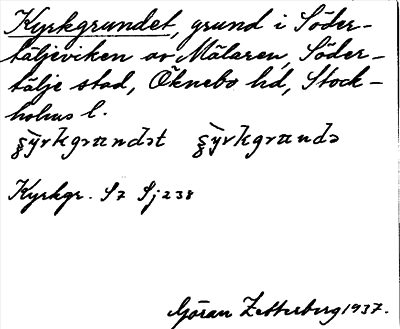 Kyrkgrundet, grund i Söder-
täljeviken av Mälaren, Söder-
tälje stad, Öknebo hd, Stock-
holms l.
Kyrkgr. S7 Sj 238
Göran Zetterberg 1937.